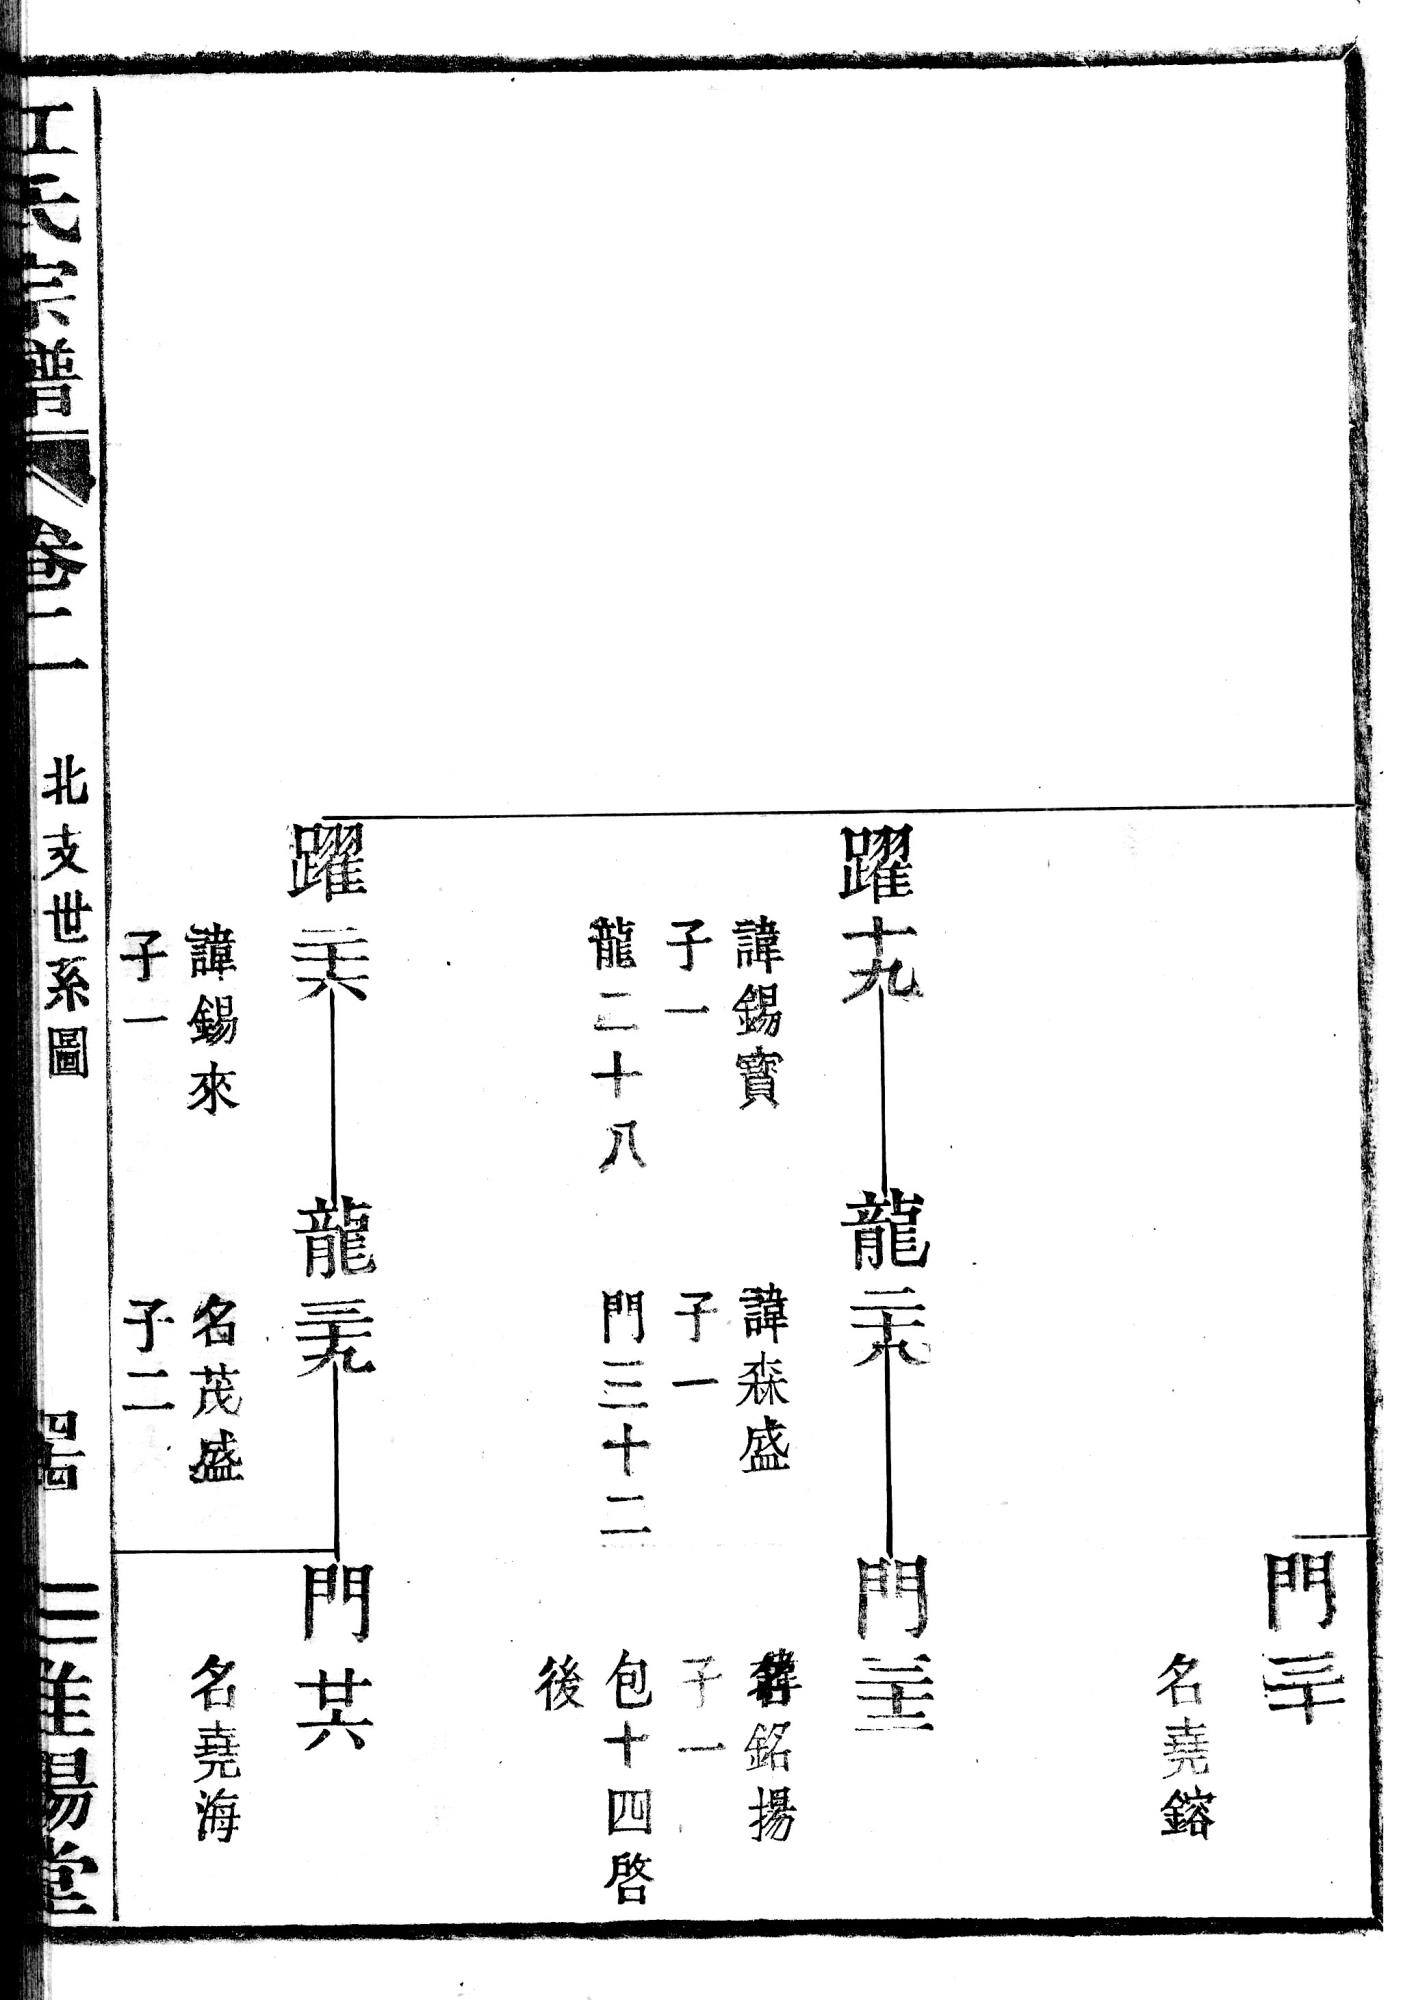 門三十
名堯鎔
躍十九
龍二十八
門三十二
諱錫寶
諱森盛
銘揚
子一
子一
子一
龍二十八
門三十二
包十四啓
後
躍二十六
龍三十九
門廿六
諱錫來
名茂盛
名堯海
子一
子二
江氏宗譜
卷二
北支世系圖
四十四
陽堂